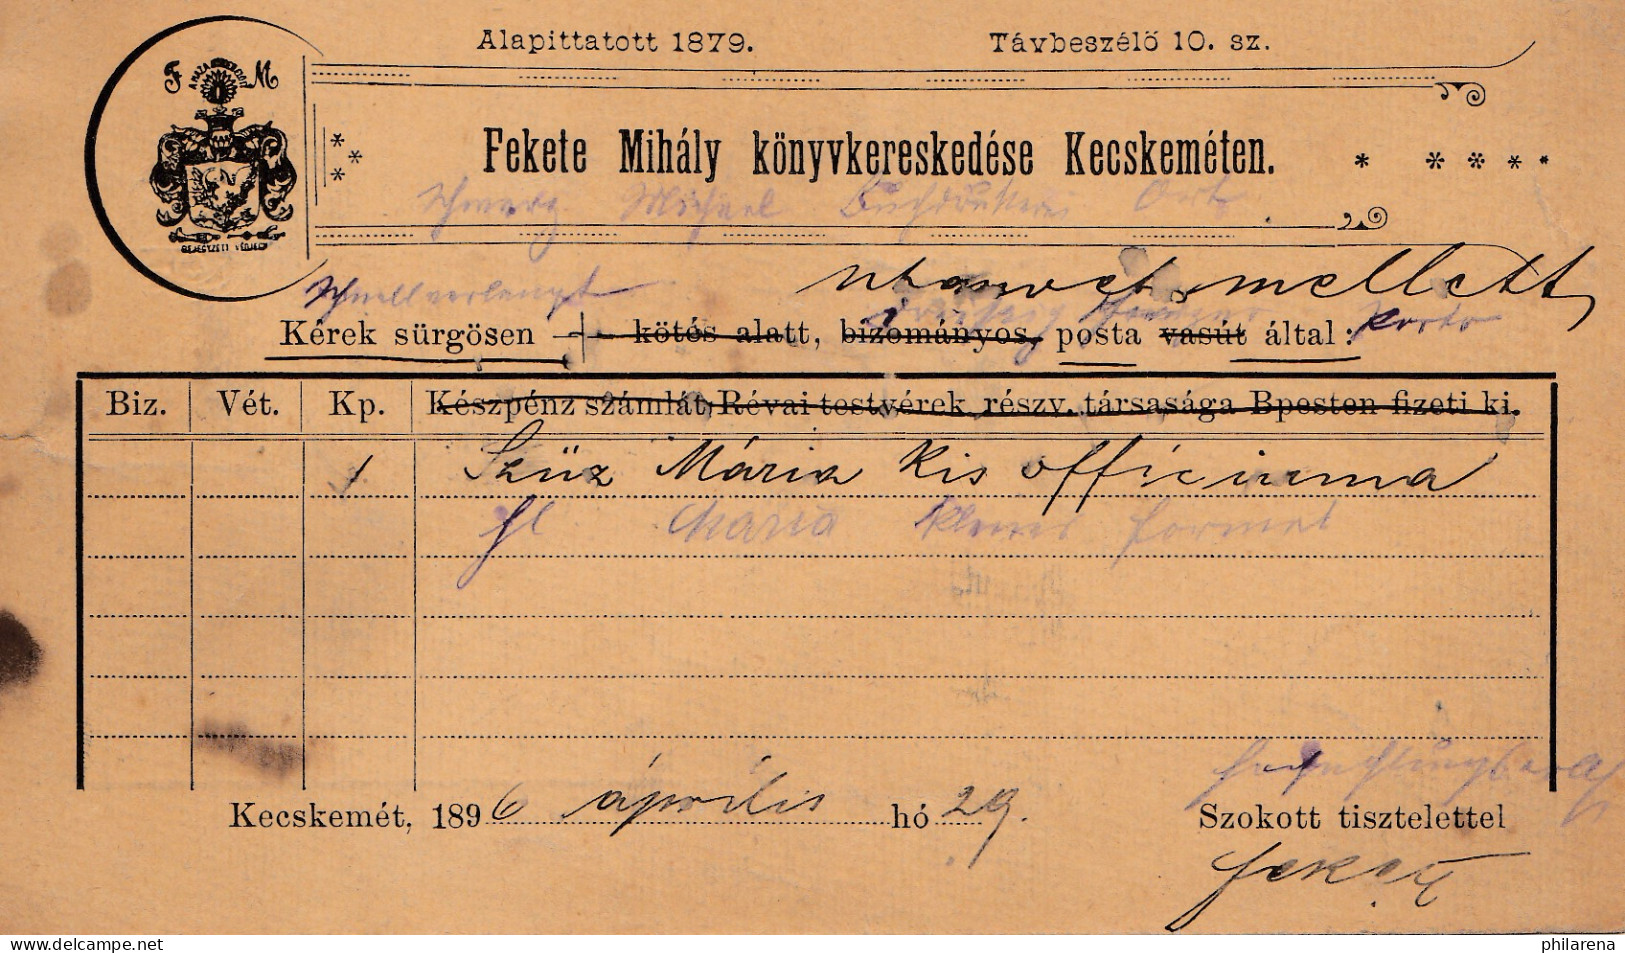 Alapittatott 1879. Távbeszélő 10. sz.
F M
Fekete Mihály könyvkereskedése Kecskeméten.
Michael
utánvét mellett
Kérek sürgősen kötés alatt, bizományos, posta vasút által: Porto
Biz. Vét. Kp. Készpénz számlát, Révai testvérek részv. társasága Bposten fizeti ki.
1 Szüz Mária Kis officiuma
Hl Maria kleines Format
Kecskemét, 1896 április hó 29.
Szokott tisztelettel
Fekete
BEJEGYZETT VÉDJEGY
philarena.com